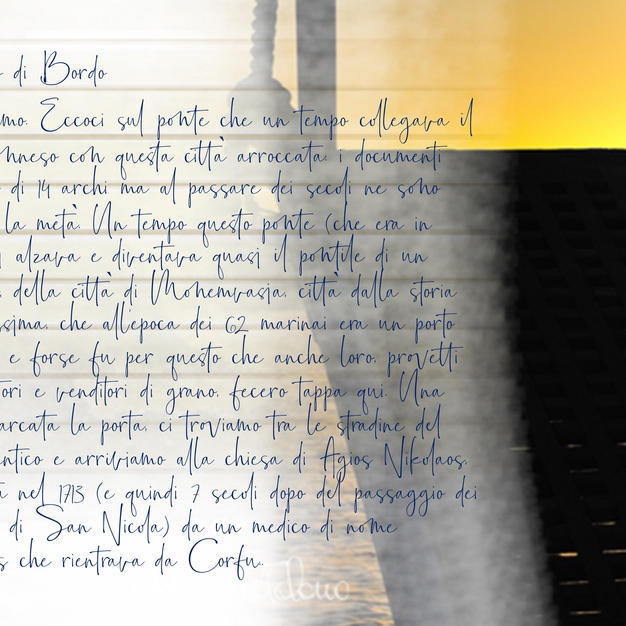 di Bordo
mo. Eccoci sul ponte che un tempo collegava il
nneso con questa città arroccata. i documenti
di 14 archi ma al passare dei secoli ne sono
la metà. Un tempo questo ponte (che era in
alzava e diventava quasi il pontile di un
della città di Monemvasia. città dalla storia
ssima. che all'epoca dei 62 marinai era un porto
e forse fu per questo che anche loro. provetti
tori e venditori di grano. fecero tappa qui. Una
arcata la porta. ci troviamo tra le stradine del
antico e arriviamo alla chiesa di Agios Nikolaos.
a nel 1713 (e quindi 7 secoli dopo del passaggio dei
di San Nicola) da un medico di nome
s che rientrava da Corfu.